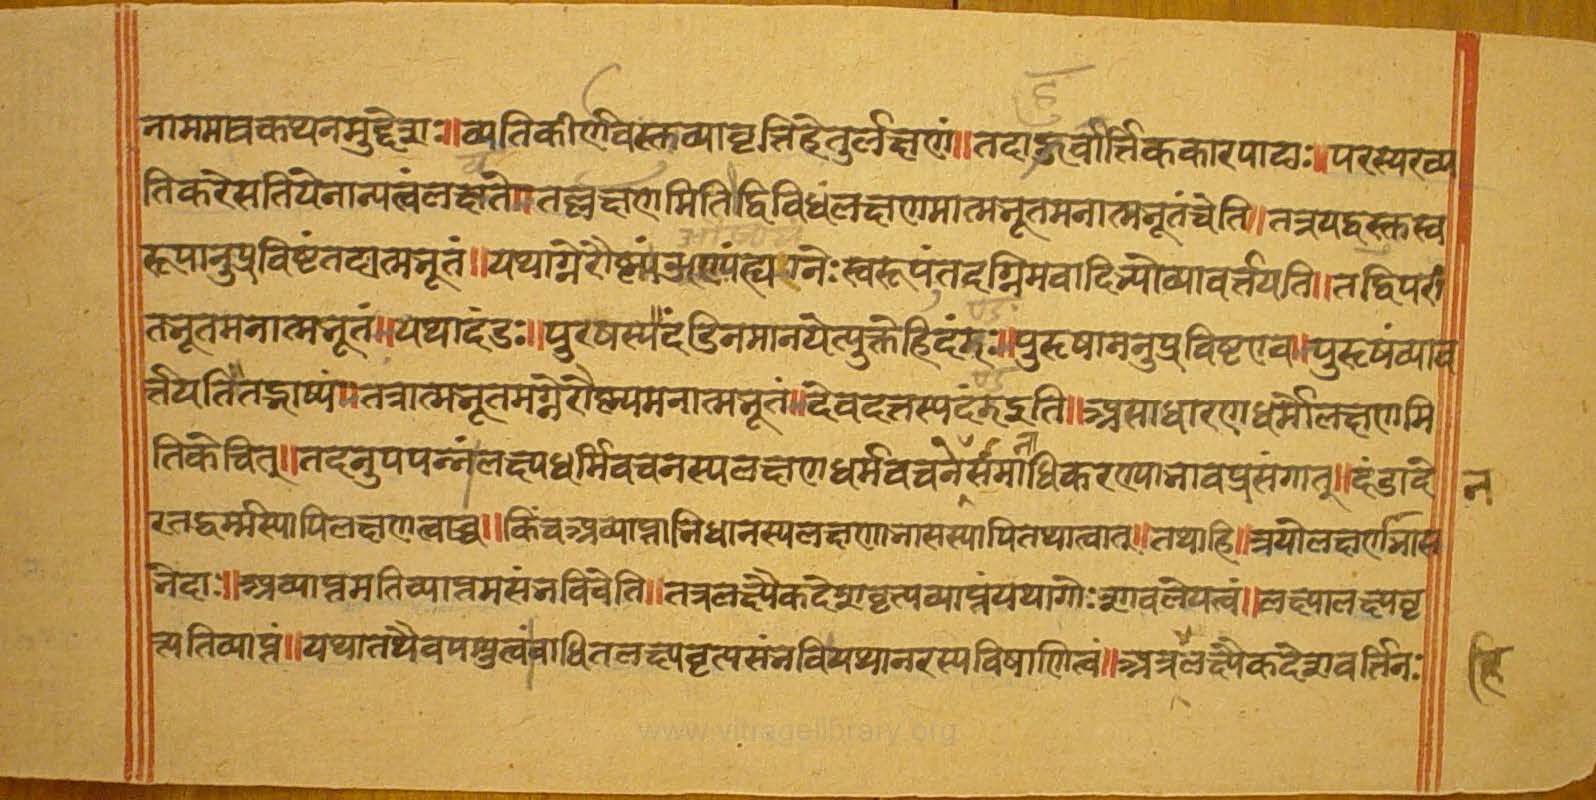 नाममात्रकथनमुद्देशः॥व्यतिकीर्णवस्तव्यावृत्तिहेतुर्लक्षणं॥तदाहुर्वार्त्तिककारपादाः॥परस्परव्य
तिकरेसतियेनान्यत्वंलक्षते॥तल्लक्षणमितिद्विविधंलक्षणमात्मभूतमनात्मभूतंचेति॥तत्रयद्वस्तस्व
रूपानुप्रविष्टंतदात्मभूतं॥यथाग्नेरौष्ण्यंह्यग्नेःस्वरूपंतदग्निमवादिभ्योव्यावर्त्तयति॥तद्विपरी
तभूतमनात्मभूतं॥यथादंडः॥पुरषस्यदंडिनमानयेत्युक्तेहिदंडः॥पुरूषामनुप्रविष्टएव॥पुरूषंव्याव
र्त्तयतितद्भाष्यं॥तत्रात्मभूतमग्नेरौष्ण्यमनात्मभूतं॥देवदत्तस्यदंडइति॥असाधारणधर्मोलक्षणमि
तिकेचित्॥तदनुपपन्नंलक्ष्यधर्मिवचनस्यलक्षणधर्मवचनेसमानाधिकरण्याभावप्रसंगात्॥दंडादे
रतद्धर्म्मस्यापिलक्षणत्वाच्च॥किंचअव्याप्ताभिधानस्यलक्षणाभासस्यापितथात्वात्॥तथाहि॥त्रयोलक्षणाभास
न
भेदाः॥अव्याप्तमतिव्याप्तमसंभविचेति॥तत्रलक्ष्यैकदेशवृत्यव्याप्तंयथागोःशावलेयत्वं॥लक्ष्यालक्ष्यवृ
त्यतिव्याप्तं॥यथातथैवपशुत्वंबाधितलक्ष्यवृत्यसंभवियथानरस्यविषाणित्वं॥अत्रलक्ष्यैकदेशवर्त्तिनः
www.vitragelibrary.org